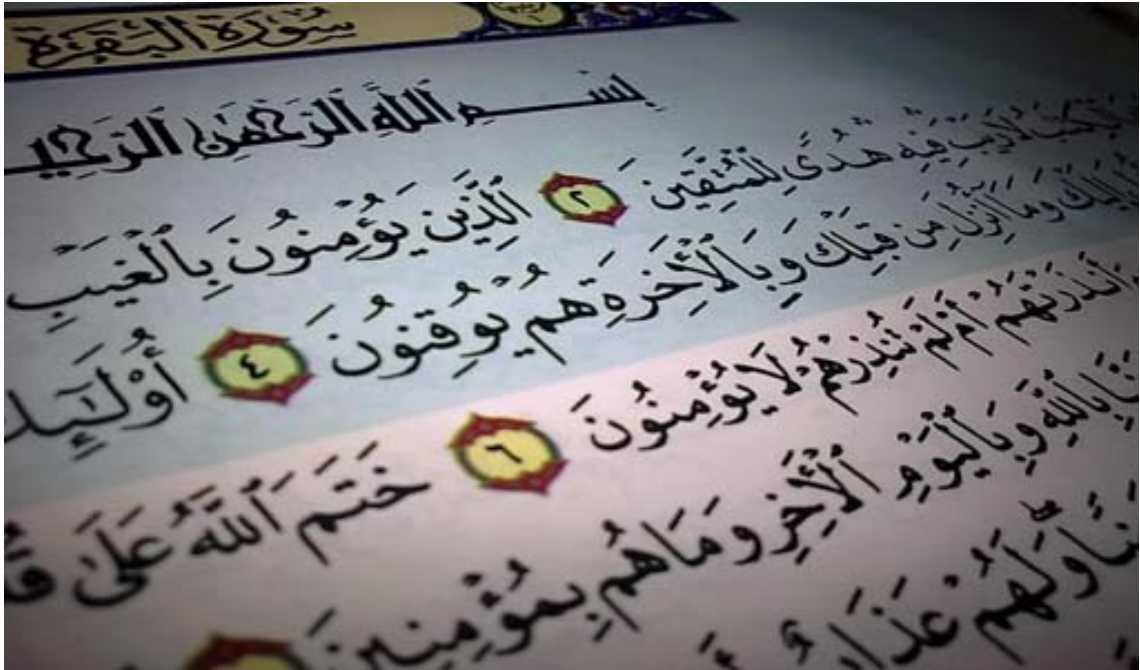 سُورَةُ البَقَرَةِ
بِسْمِ ٱللَّهِ ٱلرَّحْمَٰنِ ٱلرَّحِيـ
ٱلْكِتَٰبُ لَا رَيْبَ فِيهِ هُدًى لِّلْمُتَّقِينَ ٢ ٱلَّذِينَ يُؤْمِنُونَ بِٱلْغَيْبِ
إِلَيْكَ وَمَآ أُنزِلَ مِن قَبْلِكَ وَبِٱلْأَخِرَةِ هُمْ يُوقِنُونَ ٤ أُو۟لَٰٓئِكَ
ءَأَنذَرْتَهُمْ أَمْ لَمْ تُنذِرْهُمْ لَا يُؤْمِنُونَ ٦ خَتَمَ ٱللَّهُ عَلَىٰ
بِٱللَّهِ وَبِٱلْيَوْمِ ٱلْأَخِرِ وَمَا هُم بِمُؤْمِنِينَ
وَلَهُمْ عَذَابٌ